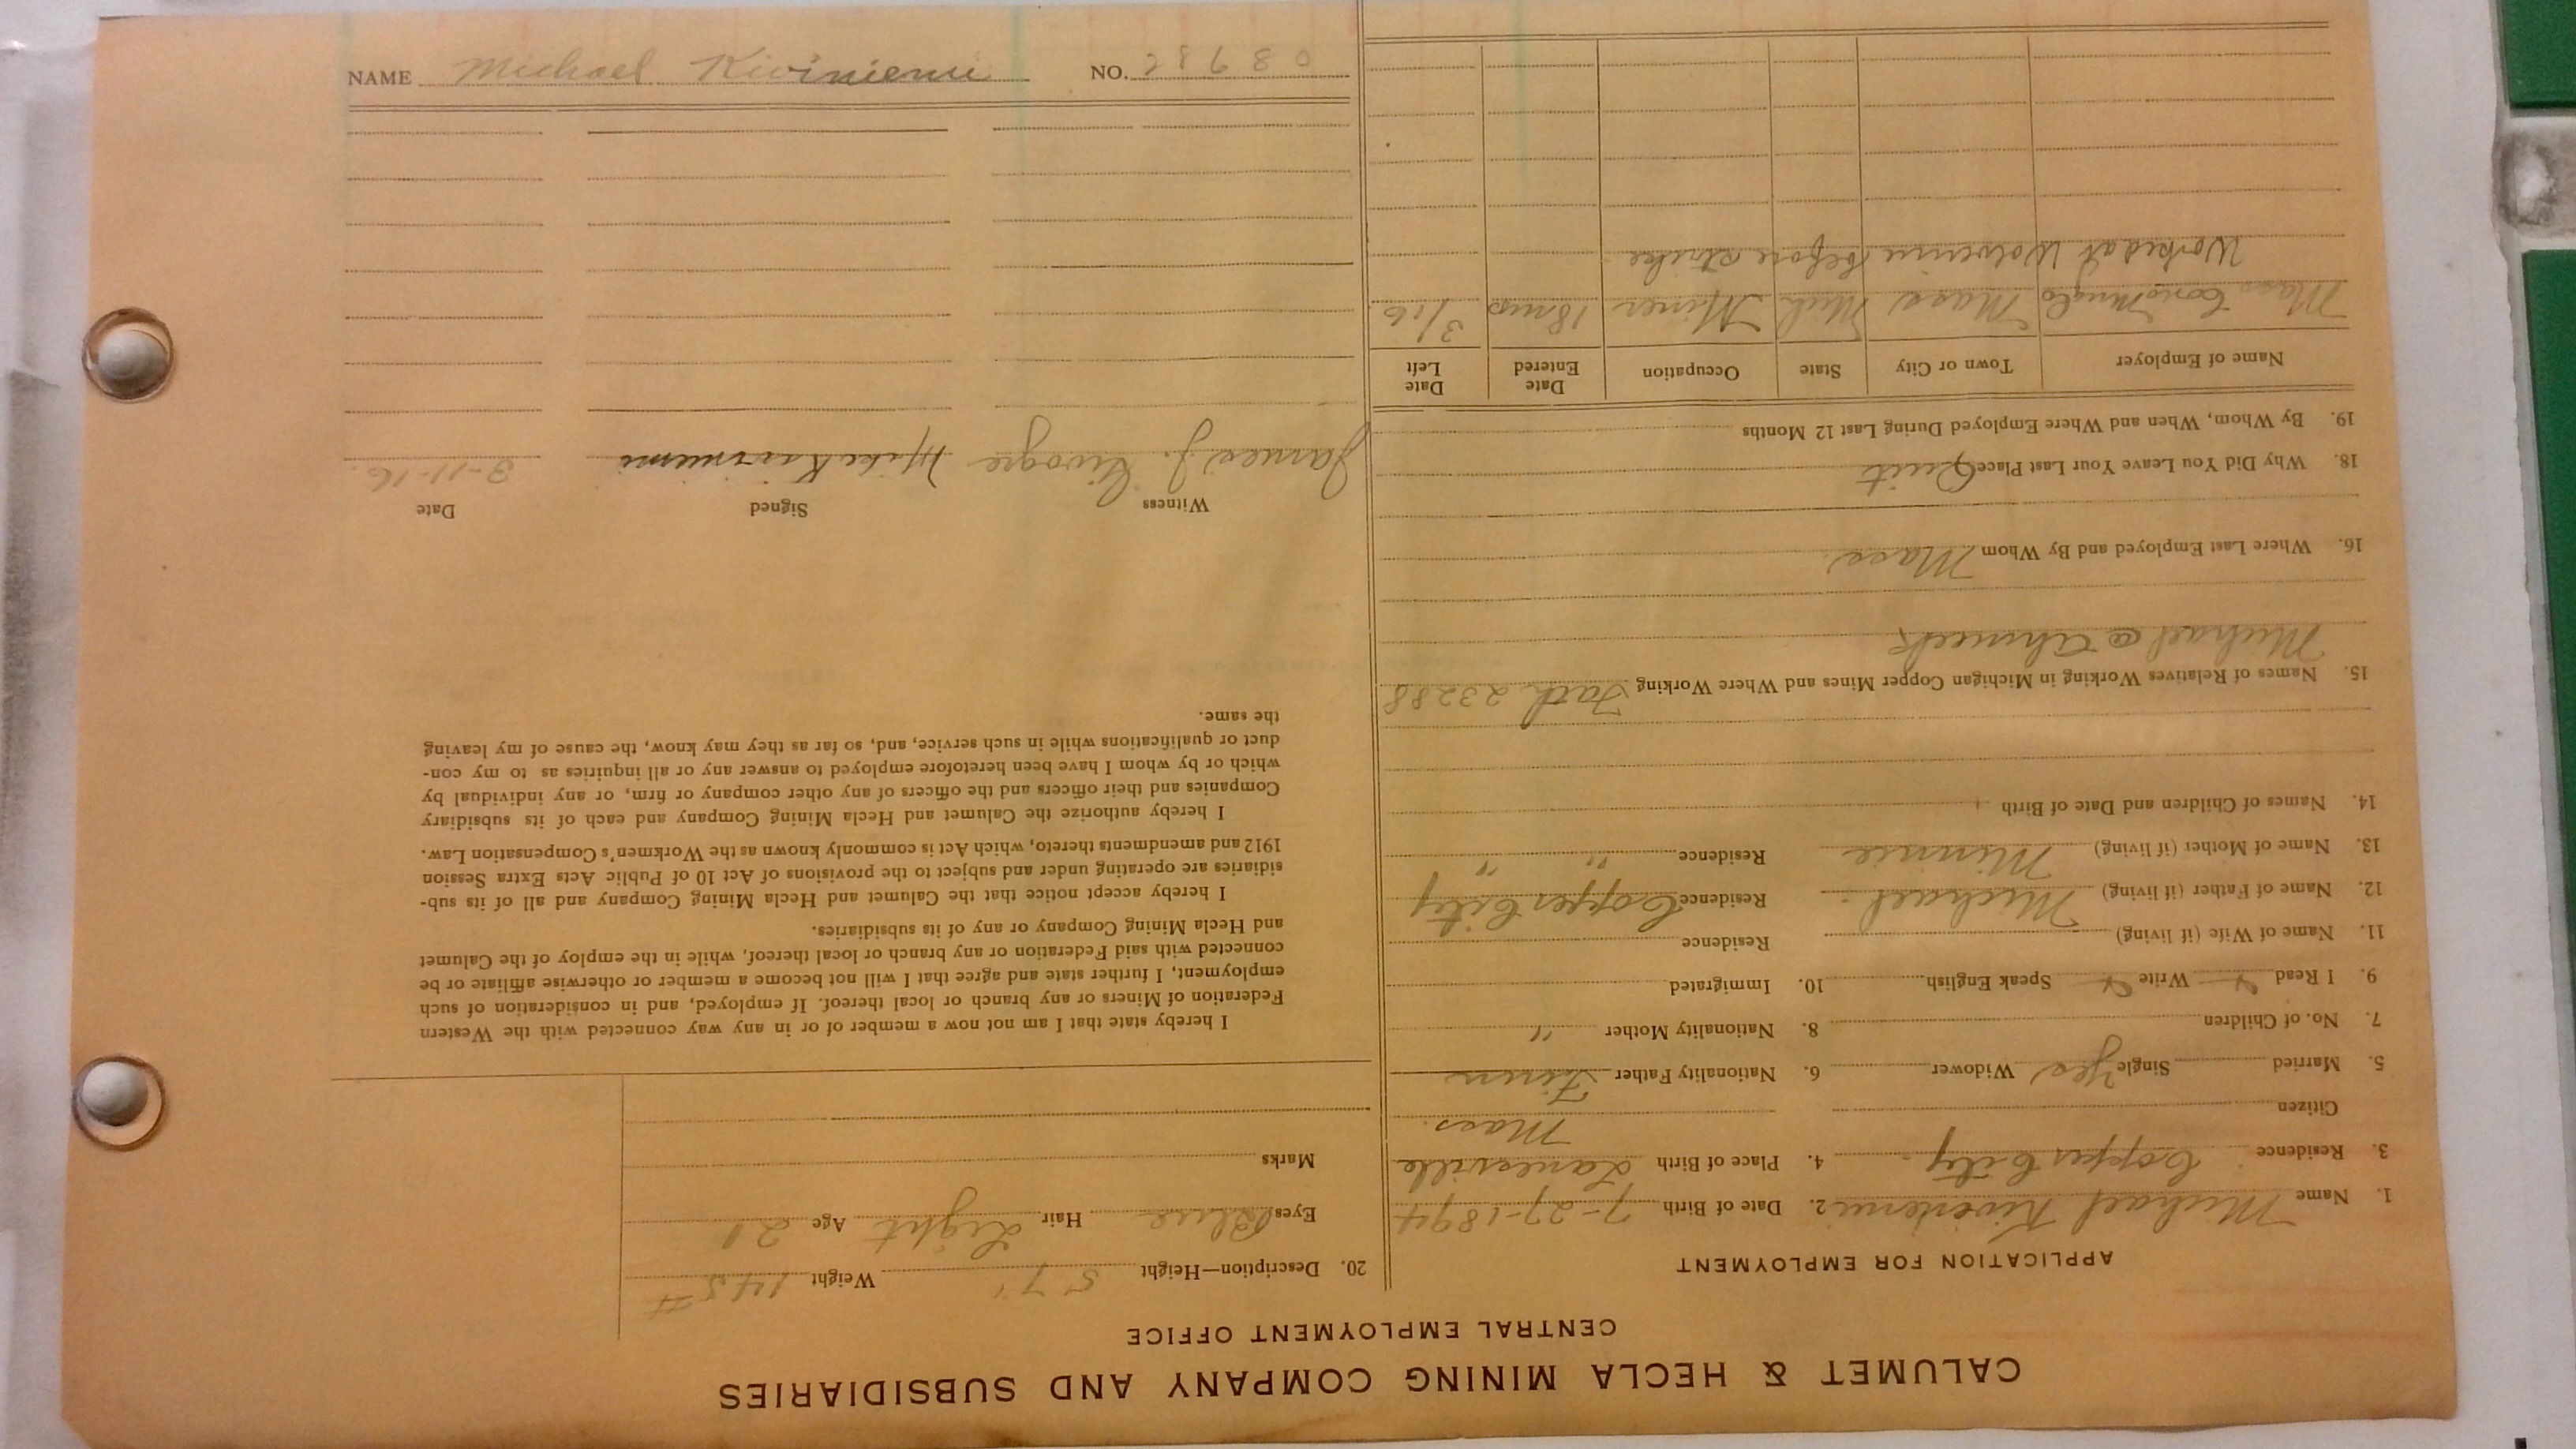 CALUMET & HECLA MINING COMPANY AND SUBSIDIARIES
CENTRAL EMPLOYMENT OFFICE
APPLICATION FOR EMPLOYMENT
1. Name Michael Kiviniemi 2. Date of Birth 7-27-1894
3. Residence Copper City 4. Place of Birth Lanesville
Mass.
Citizen
5. Married Single Yes Widower 6. Nationality Father Finn
7. No. of Children 8. Nationality Mother "
9. I Read Write Speak English 10. Immigrated
11. Name of Wife (if living) Residence
12. Name of Father (if living) Michael Residence Copper City
13. Name of Mother (if living) Minnie Residence " "
14. Names of Children and Date of Birth
15. Names of Relatives Working in Michigan Copper Mines and Where Working Fath 23288
Michael @ Ahmeek
16. Where Last Employed and By Whom Mass
18. Why Did You Leave Your Last Place Quit
19. By Whom, When and Where Employed During Last 12 Months
Name of Employer Town or City State Occupation Date Entered Date Left
Mass Mass Mich Miner 18 mos 3/16
Worked at Wolverine before strike
20. Description—Height 5 7" Weight 145#
Eyes Blue Hair Light Age 21
Marks
I hereby state that I am not now a member of or in any way connected with the Western
Federation of Miners or any branch or local thereof. If employed, and in consideration of such
employment, I further state and agree that I will not become a member or otherwise affiliate or be
connected with said Federation or any branch or local thereof, while in the employ of the Calumet
and Hecla Mining Company or any of its subsidiaries.
I hereby accept notice that the Calumet and Hecla Mining Company and all of its sub-
sidiaries are operating under and subject to the provisions of Act 10 of Public Acts Extra Session
1912 and amendments thereto, which Act is commonly known as the Workmen's Compensation Law.
I hereby authorize the Calumet and Hecla Mining Company and each of its subsidiary
Companies and their officers and the officers of any other company or firm, or any individual by
which or by whom I have been heretofore employed to answer any or all inquiries as to my con-
duct or qualifications while in such service, and, so far as they may know, the cause of my leaving
the same.
Witness Signed Date
James J. Mike Kiviniemi 3-11-16.
NAME Michael Kiviniemi NO.